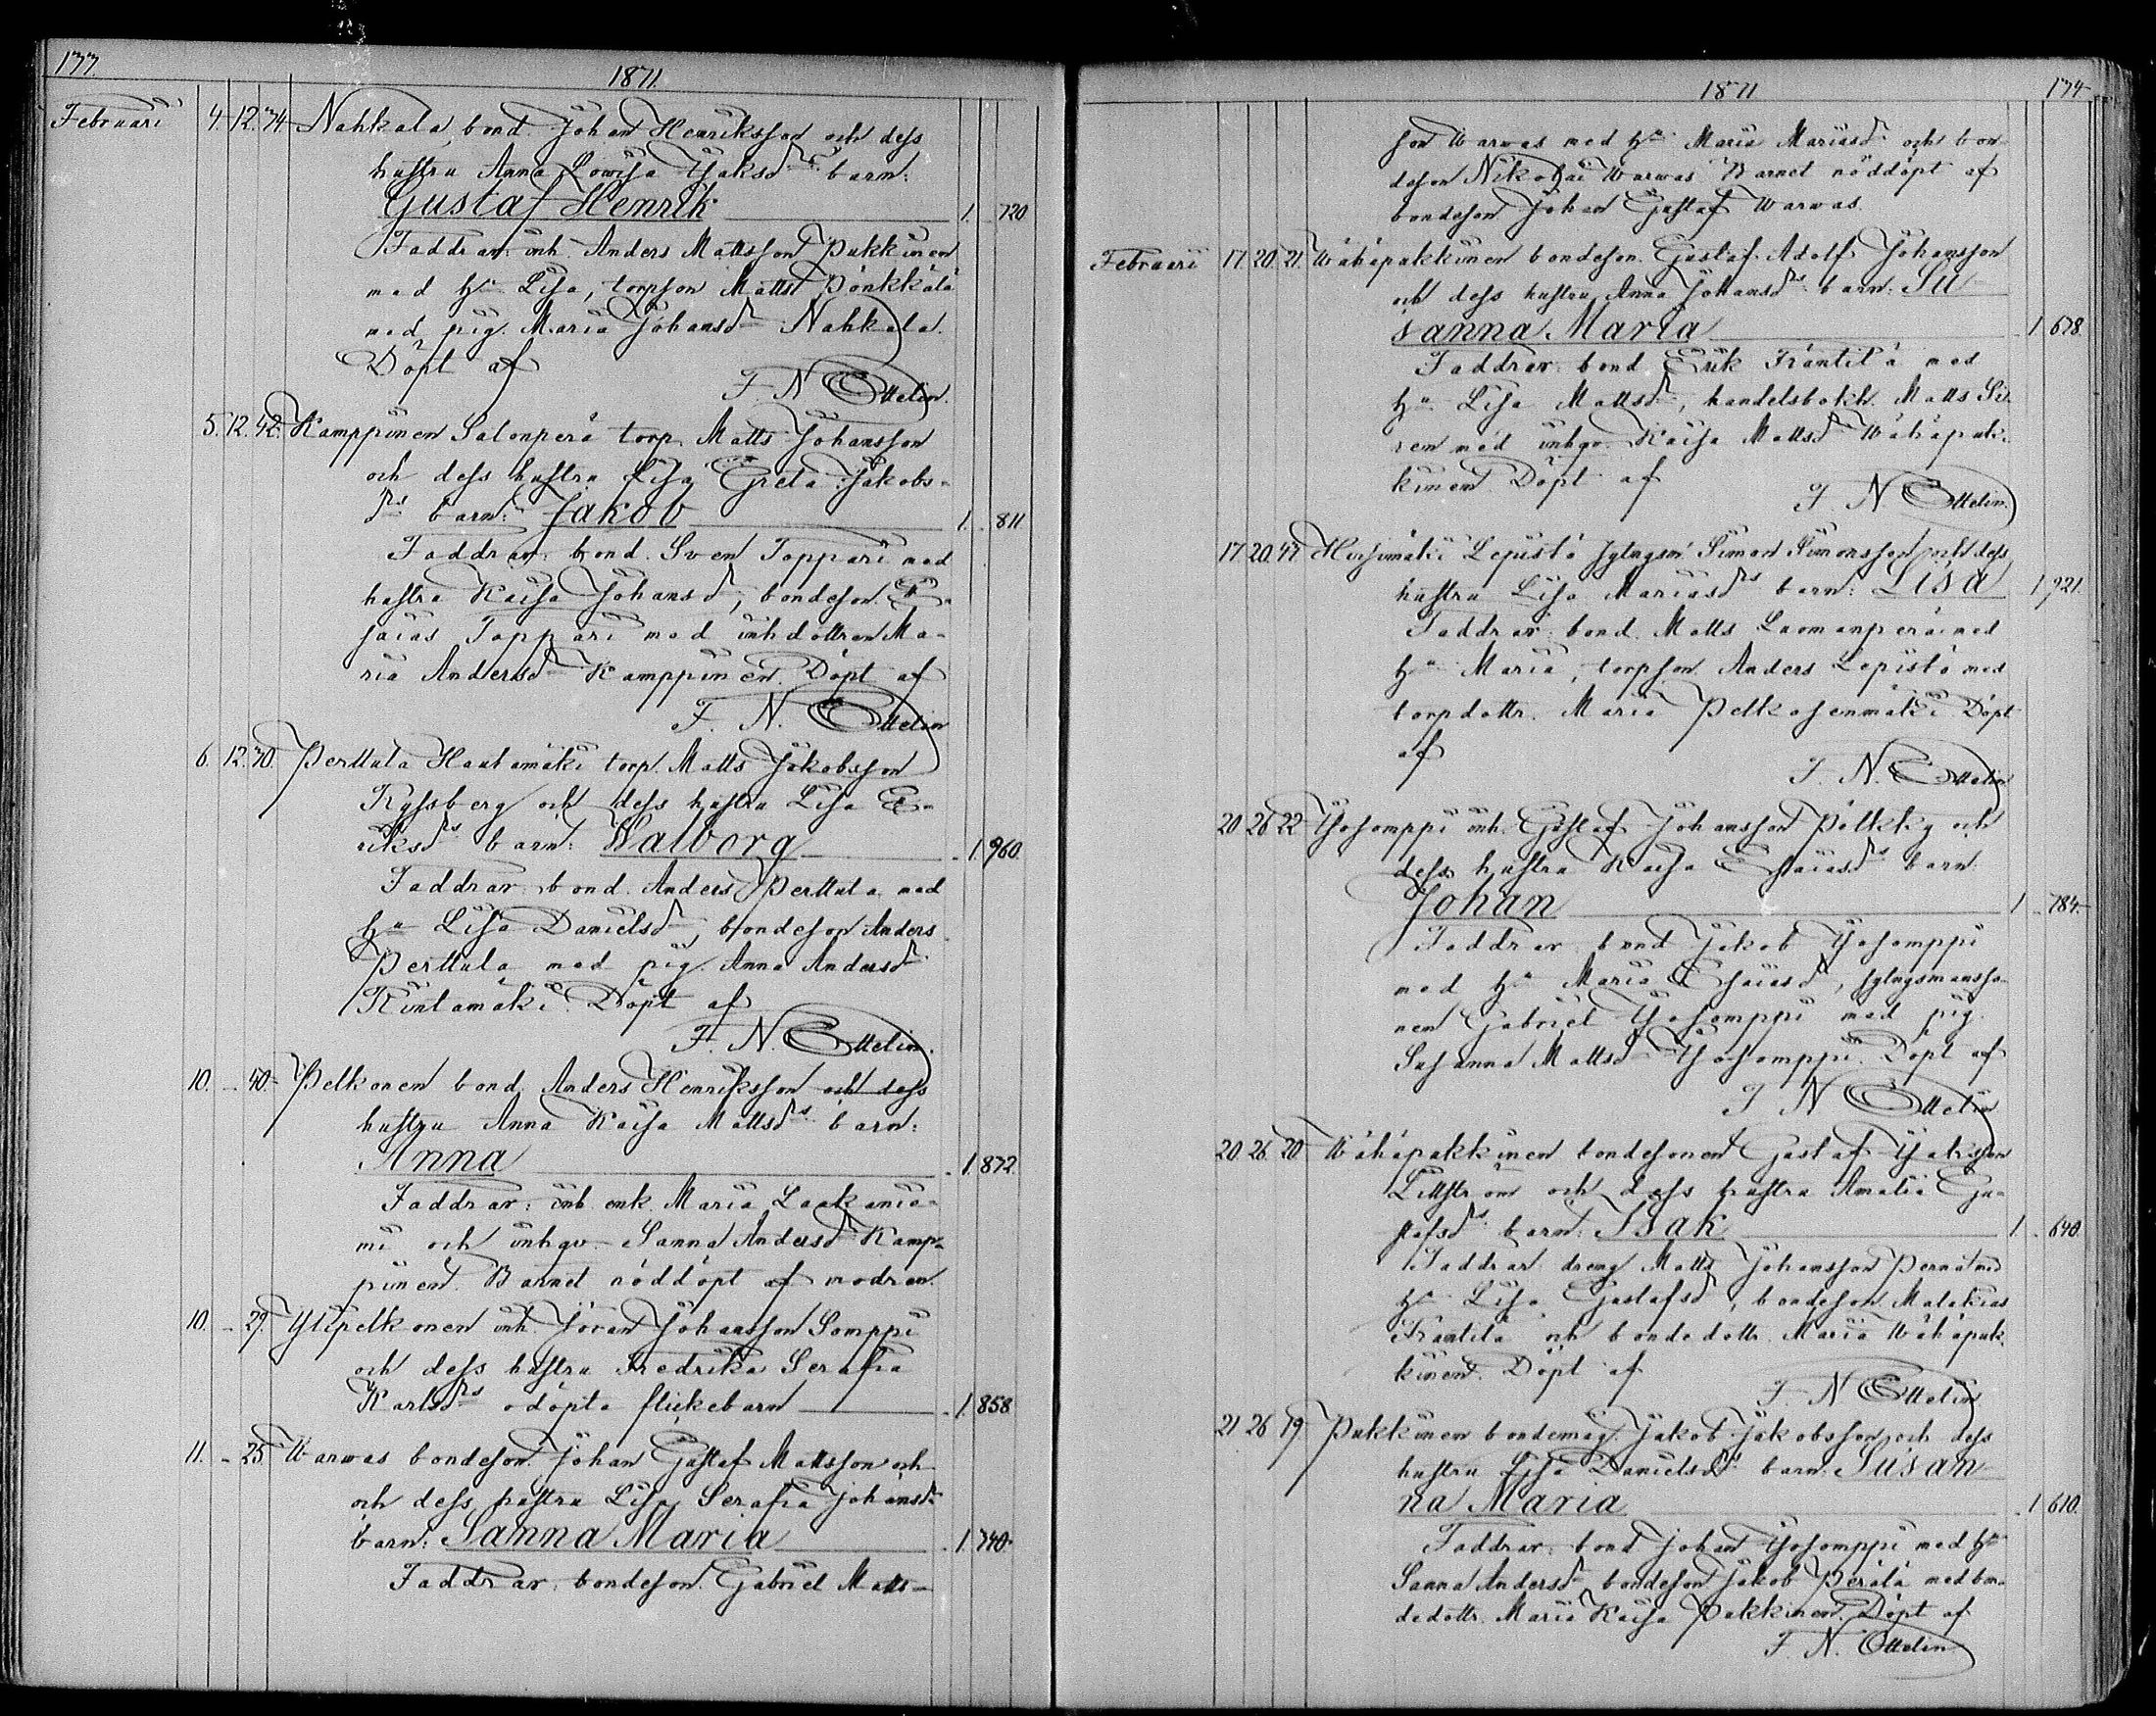 177.
1871.
Februari 4. 12. 34 Nahkala, bond. Johan Henriksson och dess
hustru Anna Lowisa Isaksdrs barn:
Gustaf Henrik 1. 720.
Faddrar: inh. Anders Mattsson Pukkinen
med hu Lisa, torpson Matts Pönkkälä
med pig. Maria Johansdr Nahkala.
Döpt af
F. N. Ottelin.
5. 12. 42. Kamppinen Salonperä torp. Matts Johansson
och dess hustru Lisa Greta Jakobs-
drs barn: Jakob 1. 811
Faddrar: bond. Sven Toppari med
hustru Kaisa Johansdr, bondeson E-
saias Toppari med inh dottren Ma-
ria Andersdr Kamppinen. Döpt af
F. N. Ottelin
6. 12. 30. Perttula Hautamäki torp. Matts Jakobsson
Kyssberg och dess hustru Lisa E-
riksdrs barn: Walborg 1. 960.
Faddrar bond. Anders Perttula med
hu Lisa Danielsdr, bondeson Anders
Perttula med pig. Anna Andersdr
Rintamäki. Döpt af
F. N. Ottelin.
10. - 40. Pelkonen bond. Anders Henriksson och dess
hustru Anna Kaisa Mattsdrs barn:
Anna 1. 872.
Faddrar: inh. enk. Maria Laakanie-
mi och inhqv. Sanna Andersdr Kamp-
pinen. Barnet nöddöpt af modren.
10. - 29. Ylipelkonen inh. Göran Johansson Somppi
och dess hustru Fredrika Serafia
Karlsdrs odöpta flickebarn 1. 858.
11. - 25. Warwas bondeson. Johan Gustaf Mattsson och
och dess hustru Lisa Serafia Johansdrs
barn: Sanna Maria 1. 740.
Faddrar: bondeson. Gabriel Matts-
1871
174
son Warwas med hu Maria Mariasdr och bon-
deson Nikolai Warwas Barnet nöddöpt af
bondeson Johan Gustaf Warwas.
Februari 17. 20. 21. Wähäpakkinen bondeson. Gustaf Adolf Johansson
och dess hustru Anna Johansdrs barn: Su-
sanna Maria 1 678.
Faddrar: bond Erik Fräntilä med
hu Lisa Mattsdr, handelsbokh. Matts Si-
ren med inhqv. Kaisa Mattsdr Wähäpak-
kinen. Döpt af
F. N Ottelin.
17. 20. 47. Hirsimäki Lepistö Simon Simonsson och dess
hustru Lisa Mariasdrs barn: Lisa 1 921.
Faddrar: bond. Matts Laomanperä med
hu Maria, torpson. Anders Lepistö med
torpdottr. Maria Pelkosenmäki Döpt
af
F. N. Ottelin
20 26 22 Yösomppi inh. Gustaf Johansson Pölkky och
dess hustru Kaisa Esaiasdrs barn.
Johan 1 784.
Faddrar bond Jakob Yösomppi
med hu Maria Esaiasdr,
nen Gabriel Yösomppi med pig.
Susanna Mattsdr Yösomppi. Döpt af
F N Ottelin
20. 26. 20 Wähäpakkinen bondesonen Gustaf Isaksson
Littström och dess hustru Amalia Gu-
stafsdrs barn: Isak 1. 640.
Faddrar dreng Matts Johansson Pernä med
hu Lisa Gustafsdr, bondeson. Malakias
Fräntilä och bondedottr. Maria Wähäpak-
kinen. Döpt af
F. N Ottelin
21 26 19 Pukkinen bondemåg. Jakob Jakobsson och dess
hustru Lisa Danielsdrs barn. Susan
na Maria 1 610.
Faddrar: bond Johan Yösomppi med hu
Sanna Andersdr bondeson Jakob Perälä med bon-
dedottr. Maria Kaisa Pukkinen. Döpt af
F. N. Ottelin